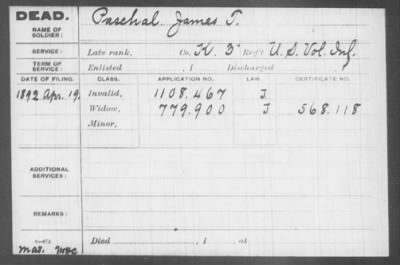 DEAD.
NAME OF SOLDIER: Paschal, James T.
SERVICE: Late rank, Co. K. 3" Reg't U.S. Vol. Inf.
TERM OF SERVICE: Enlisted , 1 Discharged
DATE OF FILING. CLASS. APPLICATION NO. LAW. CERTIFICATE NO.
1892 Apr. 19. Invalid, 1108.467 J
Widow, 779.900 J 568.118
Minor,
ADDITIONAL SERVICES:
REMARKS:
Died , 1 , at